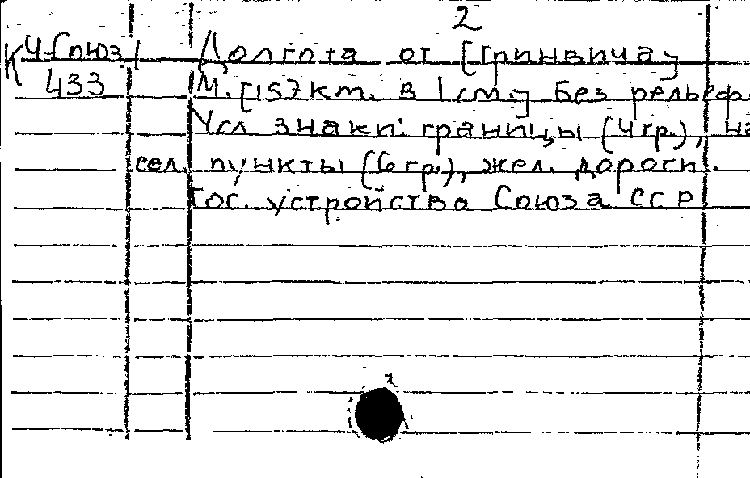 2
К 4-Союз/ Долгота от [Гринвича]
433 М. [157 km. в 1 см.] Без рельеф
Усл. знаки: границы (4 гр.), на
сел. пункты (6 гр.), жел. дороги.
Гос. устройства Союза ССР